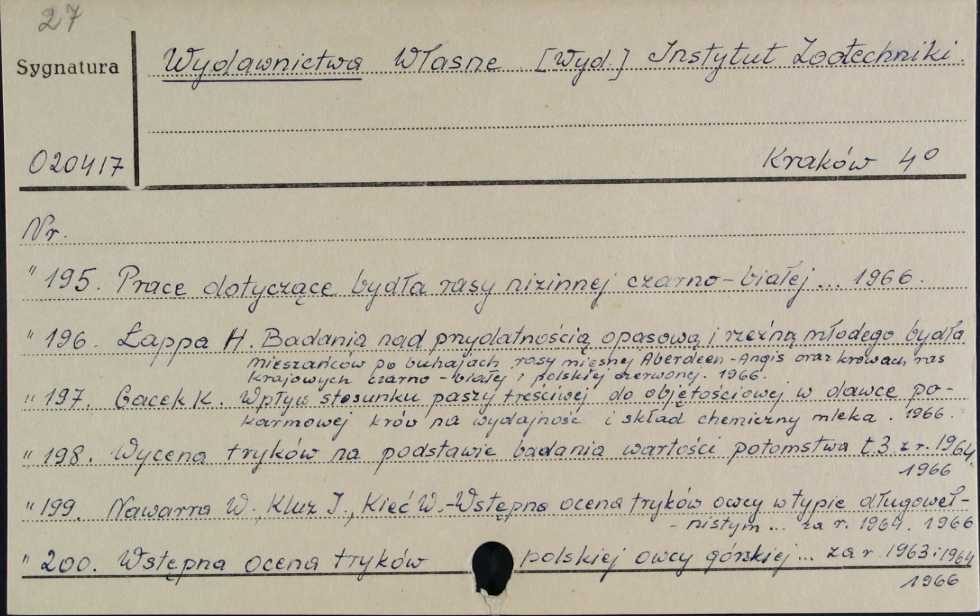 27
Sygnatura
Wydawnictwa Własne [Wyd.] Instytut Zootechniki.
020417
Kraków 4°
Nr.
" 195. Prace dotyczące bydła rasy nizinnej czarno-białej... 1966.
" 196. Łappa H. Badania nad przydatnością opasową i rzeźną młodego bydła
mieszańców po buhajach rasy mięsnej Aberdeen-Angis oraz krowach ras
krajowych czarno-białej i polskiej czerwonej. 1966.
" 197. Gacek K. Wpływ stosunku paszy treściwej do objętościowej w dawce po-
karmowej krów na wydajność i skład chemiczny mleka. 1966.
" 198. Wycena tryków na podstawie badania wartości potomstwa t.3. z r. 1964,
1966
" 199. Nawarra W., Kluz J., Kieć W.-Wstępna ocena tryków owcy w typie długoweł-
-nistym... za r. 1964. 1966
" 200. Wstępna ocena tryków polskiej owcy górskiej... za r. 1963 i 1964
1966